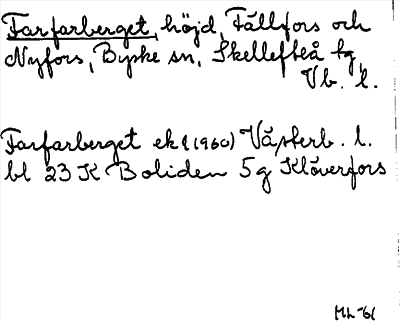 Farfarberget, höjd, Fällfors och
Nyfors, Byske sn, Skellefteå tg
Vb. l.
Farfarberget ek (1960) Västerb. l.
bl 23 K Boliden 5g Klöverfors
ML-61